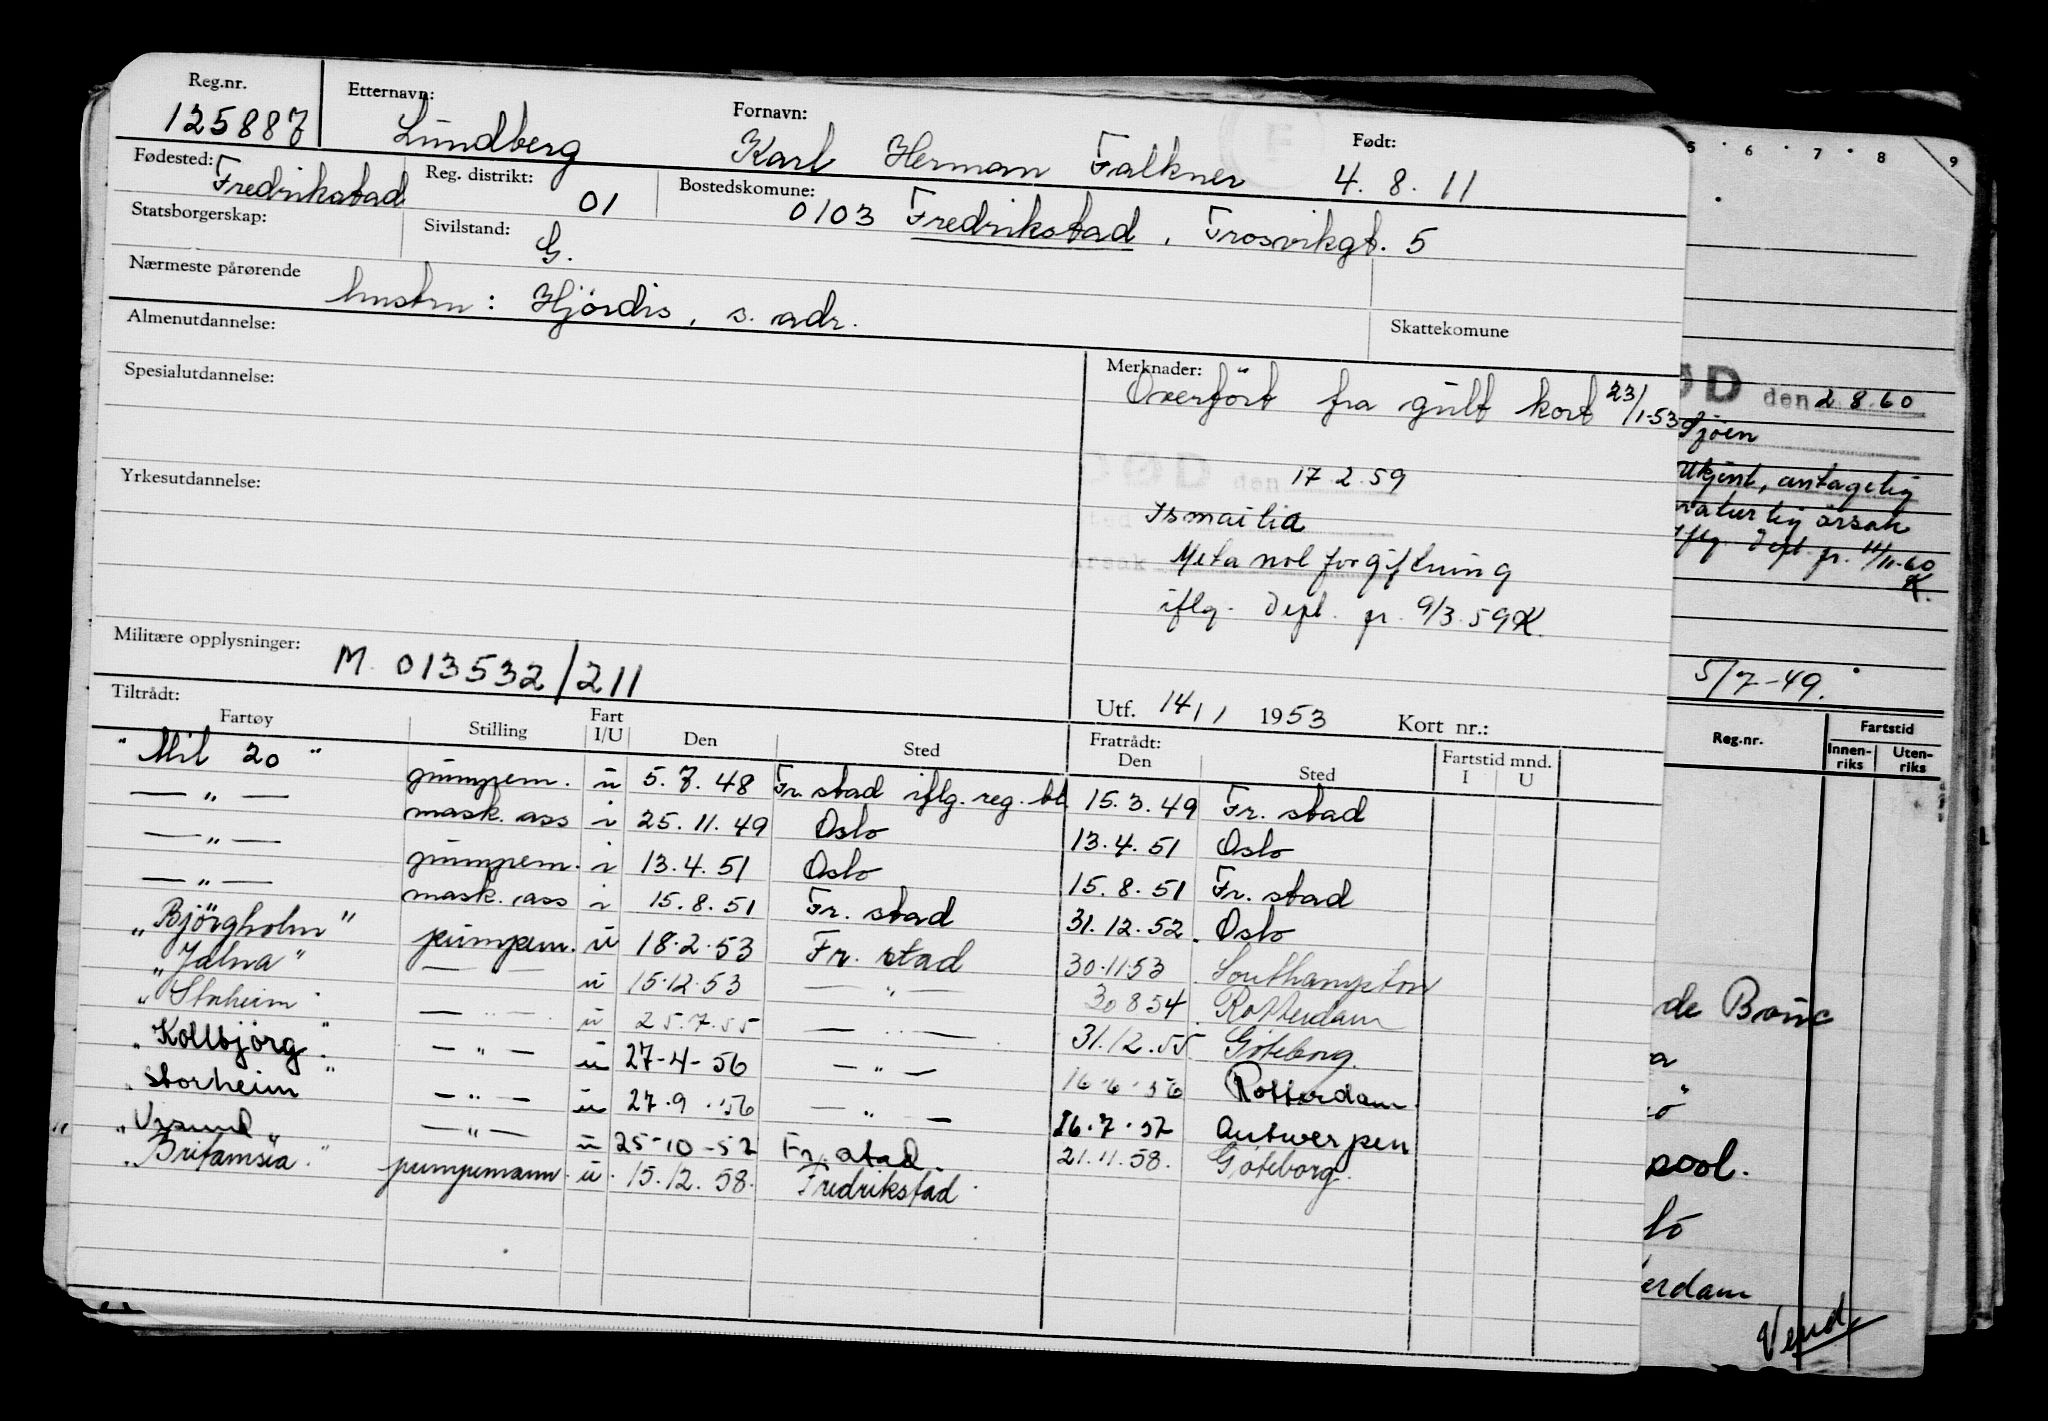 Reg.nr. Etternavn: Fornavn: Født:
125887 Lundberg Karl Herman Falkner 4.8.11
Fødested: Reg. distrikt: Bostedskomune:
Fredrikstad 01 0103 Fredrikstad, Trosvikgt. 5
Statsborgerskap: Sivilstand: G.
Nærmeste pårørende hustru: Hjördis, s. adr.
Almenutdannelse: Skattekomune
Spesialutdannelse: Merknader:
Overfört fra gult kort 23/1-53
DØD den 17.2.59
Yrkesutdannelse:
Ismailia
Årsak Metanolforgiftning
iflg. Depl. pr. 9/3.59 K.
Militære opplysninger: M. 013532/211
Utf. 14/1 1953 Kort nr.:
Tiltrådt: Fratrådt: Fartstid mnd.
Fartøy Stilling Fart I/U Den Sted Den Sted I U
"Mil 20" pumpem. u 5.7.48 Fr.stad iflg. reg. bl. 15.3.49 Fr. stad
— " — mask. ass i 25.11.49 Oslo 13.4.51 Oslo
— " — pumpem. i 13.4.51 Oslo 15.8.51 Fr. stad
— " — mask. ass i 15.8.51 Fr. stad 31.12.52 Oslo
"Björgholm" pumpem. u 18.2.53 Fr. stad 30.11.53 Southampton
"Jalna" — — u 15.12.53 — " — 30 8 54 Rotterdam
"Storheim" — " — u 25.7.55 — " — 31.12.55 Göteborg.
"Kollbjörg" — " — u 27-4-56 — " — 16.6.56 Rotterdam
"Storheim — " — u 27.9.56 — " — 16.7.57 Antwerpen
"Vrsund" — " — u 25-10-57 Fr.stad 21.11.58. Göteborg.
"Britamsea" pumpemann. u. 15.12.58. Fredrikstad
5 6 7 8 9
ØD den 2.8.60
Sjöen
Ukjent, antagelig
naturlig årsak
iflg. Depl. pr. 11/11-60
K.
5/7-49.
Reg.nr. Fartstid
Innenriks Utenriks
de Bouc
pool.
erdam
Vend